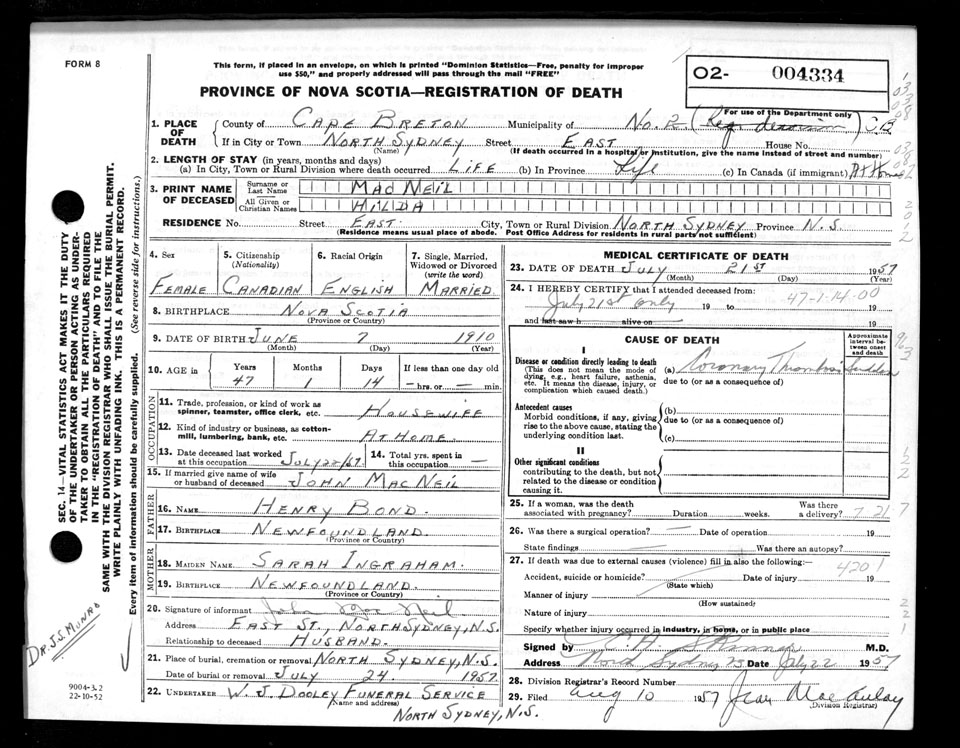 FORM 8
This form, if placed in an envelope, on which is printed "Dominion Statistics—Free, penalty for improper
use $50," and properly addressed will pass through the mail "FREE"
O2- 004334
For use of the Department only
PROVINCE OF NOVA SCOTIA—REGISTRATION OF DEATH
1. PLACE OF DEATH
County of CAPE BRETON Municipality of No. 2 C B
If in City or Town NORTH SYDNEY Street EAST House No.
(Name) (If death occurred in a hospital or institution, give the name instead of street and number)
2. LENGTH OF STAY (in years, months and days)
(a) In City, Town or Rural Division where death occurred LIFE (b) In Province Life (c) In Canada (if immigrant) At Home
3. PRINT NAME OF DECEASED
Surname or Last Name MACNEIL
All Given or Christian Names HILDA
RESIDENCE No. Street EAST City, Town or Rural Division NORTH SYDNEY Province N.S.
(Residence means usual place of abode. Post Office Address for residents in rural parts not sufficient)
4. Sex
FEMALE
5. Citizenship
(Nationality)
CANADIAN
6. Racial Origin
ENGLISH
7. Single, Married,
Widowed or Divorced
(write the word)
MARRIED
8. BIRTHPLACE NOVA SCOTIA
(Province or Country)
9. DATE OF BIRTH JUNE 7 1910
(Month) (Day) (Year)
10. AGE in Years Months Days If less than one day old
47 1 14 — hrs. or — min.
OCCUPATION
11. Trade, profession, or kind of work as
spinner, teamster, office clerk, etc. HOUSEWIFE
12. Kind of industry or business, as cotton-
mill, lumbering, bank, etc. AT HOME
13. Date deceased last worked
at this occupation JULY 22/57
14. Total yrs. spent in
this occupation —
15. If married give name of wife
or husband of deceased JOHN MACNEIL
FATHER
16. NAME HENRY BOND.
17. BIRTHPLACE NEWFOUNDLAND.
(Province or Country)
MOTHER
18. MAIDEN NAME SARAH INGRAHAM.
19. BIRTHPLACE NEWFOUNDLAND.
(Province or Country)
20. Signature of informant John Mac Neil
Address EAST ST., NORTH SYDNEY, N.S.
Relationship to deceased HUSBAND.
21. Place of burial, cremation or removal NORTH SYDNEY, N.S.
Date of burial or removal JULY 24. 1957.
22. UNDERTAKER W. J. DOOLEY FUNERAL SERVICE
(Name and address)
NORTH SYDNEY, N.S.
MEDICAL CERTIFICATE OF DEATH
23. DATE OF DEATH JULY 21ST 1957
(Month) (Day) (Year)
24. I HEREBY CERTIFY that I attended deceased from:
July 21st only 19 to 19
47-1-14-00
and last saw h alive on 19
CAUSE OF DEATH
Approximate
interval be-
tween onset
and death
I
Disease or condition directly leading to death
(This does not mean the mode of
dying, e.g., heart failure, asthenia,
etc. It means the disease, injury, or
complication which caused death.)
(a) Coronary Thrombosis Sudden
due to (or as a consequence of)
Antecedent causes
Morbid conditions, if any, giving
rise to the above cause, stating the
underlying condition last.
(b)
due to (or as a consequence of)
(c)
II
Other significant conditions
contributing to the death, but not
related to the disease or condition
causing it.
25. If a woman, was the death
associated with pregnancy? Duration weeks. Was there
a delivery? 7 21 7
26. Was there a surgical operation? — Date of operation 19
State findings Was there an autopsy?
27. If death was due to external causes (violence) fill in also the following:— 4201
Accident, suicide or homicide? Date of injury 19
(State which)
Manner of injury
(How sustained)
Nature of injury
Specify whether injury occurred in industry, in home, or in public place
Signed by M.D.
Address North Sydney NS Date July 22 1957
28. Division Registrar's Record Number
29. Filed Aug 10 1957 Jean MacAulay
(Division Registrar)
SEC. 14—VITAL STATISTICS ACT MAKES IT THE DUTY
OF THE UNDERTAKER OR PERSON ACTING AS UNDER-
TAKER TO OBTAIN ALL THE PARTICULARS REQUIRED
IN THE "REGISTRATION OF DEATH" AND TO FILE THE
SAME WITH THE DIVISION REGISTRAR WHO SHALL ISSUE THE BURIAL PERMIT.
WRITE PLAINLY WITH UNFADING INK. THIS IS A PERMANENT RECORD.
Every item of information should be carefully supplied. (See reverse side for instructions.)
DR. J.S. MUNRO
9004-3.2
22-10-52